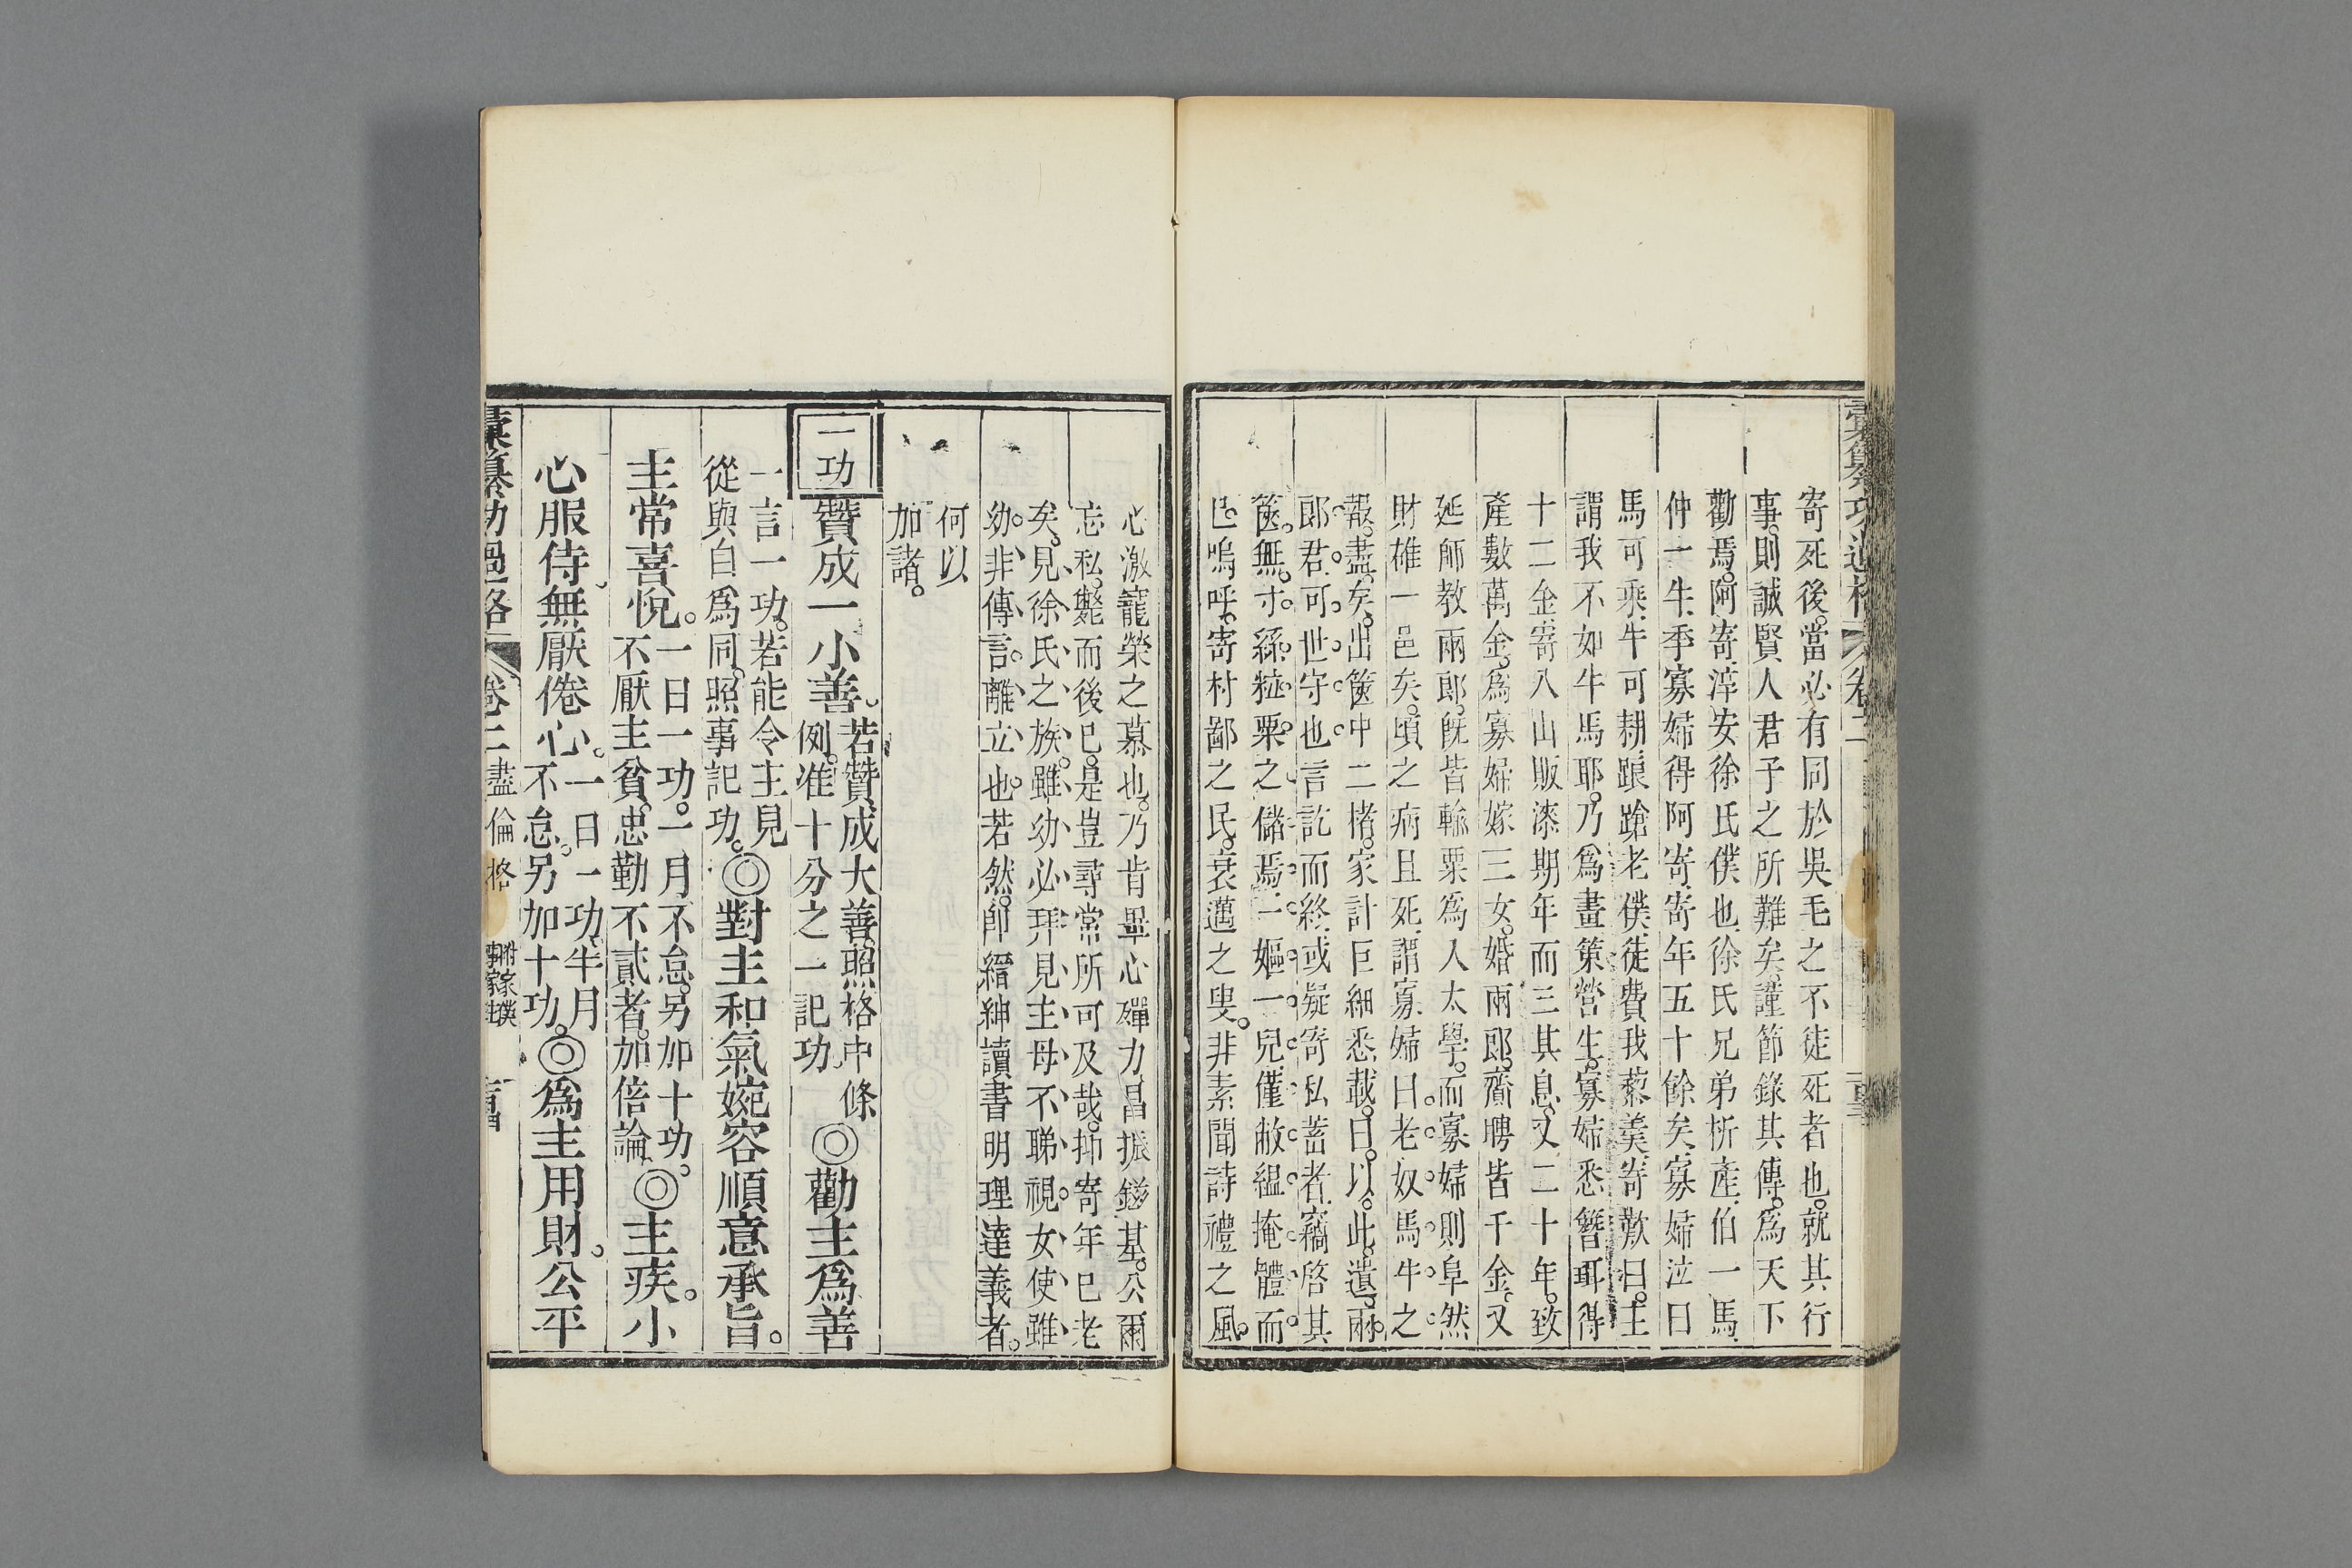 彙纂功過格 卷二
寄死後。當必有同於吳毛之不徒死者也。就其行
事。則誠賢人君子之所難矣。謹節錄其傳。爲天下
勸焉。阿寄淳安徐氏僕也。徐氏兄弟析產。伯一馬
仲一牛。季寡婦得阿寄。寄年五十餘矣。寡婦泣曰
馬可乘。牛可耕。踉蹌老僕。徒費我藜羹。寄歎曰。主
謂我不如牛馬耶。乃爲畫策營生。寡婦悉簪珥得
十二金。寄入山販漆。期年而三其息。又二十年。致
產數萬金。爲寡婦嫁三女。婚兩郎。齎聘皆千金。又
延師教兩郎。旣皆輸粟爲人太學。而寡婦則阜然
財雄一邑矣。頃之病且死。謂寡婦曰。老奴馬牛之
報盡矣。出篋中二楮。家計巨細悉載。曰。以此遺兩
郎君。可世守也。言訖而終。或疑寄私蓄者。竊啓其
篋。無寸絲粒粟之儲焉。一嫗一兒。僅敝縕掩體而
已。嗚呼。寄村鄙之民。衰邁之叟。非素聞詩禮之風。
心激寵榮之慕也。乃肯畢心殫力。昌振鎡基。公爾
忘私。斃而後已。是豈尋常所可及哉。抑寄年巳老
矣。見徐氏之族。雖幼必拜。見主母不睇視。女使雖
幼。非傳言。離立也。若然。卽縉紳讀書明理達義者。
何以
加諸。
一功
贊成一小善。若贊成大善。照格中條
例。准十分之一記功 ◎勸主爲善
一言一功。若能令主見
從與自爲同。照事記功。◎對主和氣婉容順意承旨。
主常喜悅。一日一功。一月不怠。另加十功。
不厭主貧。忠勤不貳者。加倍論 ◎主疾。小
心服侍。無厭倦心。一日一功。半月
不怠。另加十功。◎爲主用財。公平
彙纂功過格 卷二 盡倫格